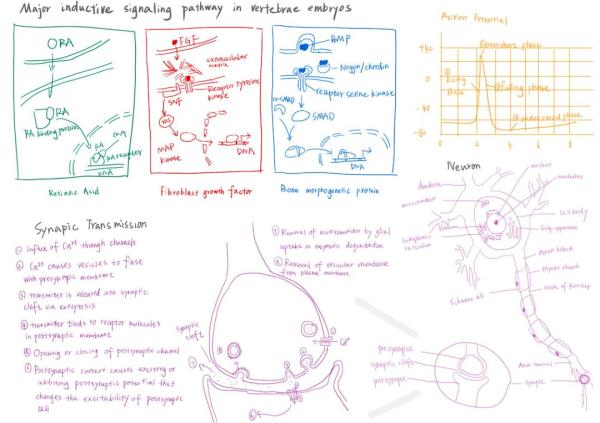 Major inductive signaling pathway in vertebrae embryos
RA
RA
RA binding protein
RA
RA receptor
DNA
Retinoic Acid
FGF
extracellular matrix
Receptor tyrosine kinase
MAP kinase
DNA
Fibroblast growth factor
BMP
Noggin/chordin
receptor serine kinase
co-SMAD
SMAD
DNA
Bone morphogenetic protein
Action Potential
+40
0
-40
-80
0
2
4
6
8
② overshoot phase
① Rising phase
③ falling phase
④ undershoot phase
Synapic Transmission
① Influx of Ca²⁺ through channels
② Ca²⁺ causes vesicles to fuse
with presynapic membrane
③ transmitter is released into synaptic
cleft via exocytosis
④ transmitter binds to receptor molecules
in postsynaptic membrane
⑤ Opening or closing of postsynaptic channel
⑥ Postsynaptic current causes excitory or
inhibitory postsynaptic potential that
changes the excitability of postsynaptic
cell
⑦ Removal of neurotransmitter by glial
uptake or enzymatic degradation
⑧ Removal of vesicular membrane
from plasma membrane
synaptic
cleft
Ca²⁺
Neuron
dendrite
mitochondrion
Endoplasmic
reticulum
nucleus
nucleolus
Cell body
Golgi apparatus
Axon hillock
Myelin sheath
Node of Ranvier
Schwann cell
Axon terminal
synapse
presynapse
synaptic cleft
postsynapse